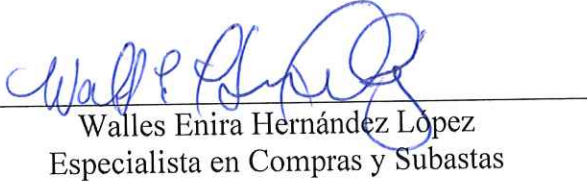 Walles Enira Hernández López
Especialista en Compras y Subastas